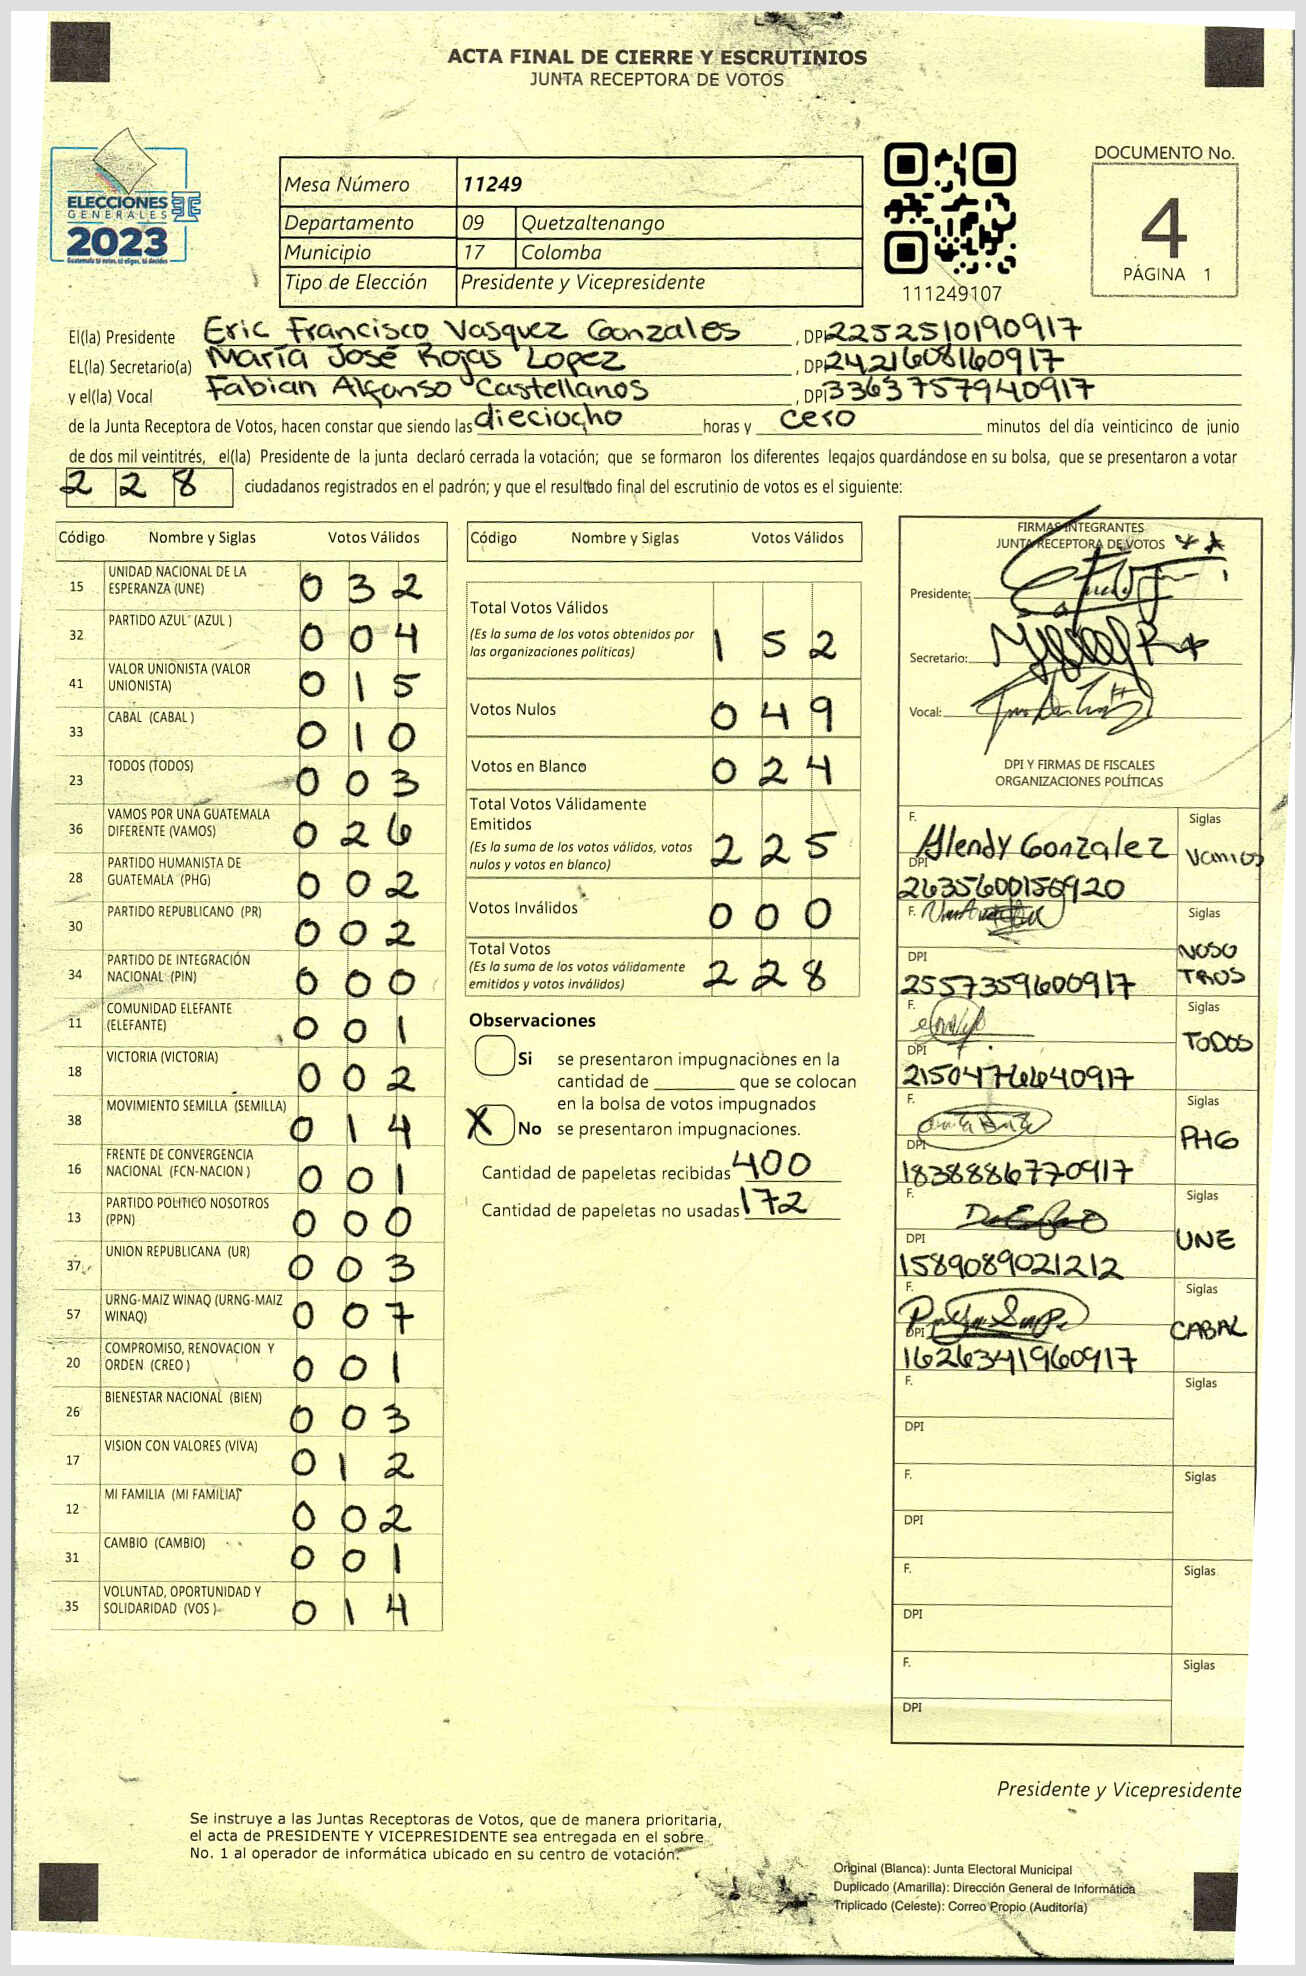 ACTA FINAL DE CIERRE Y ESCRUTINIOS
JUNTA RECEPTORA DE VOTOS
ELECCIONES
GENERALES
2023
Guatemala tú votas, tú eliges, tú decides
Mesa Número 11249
Departamento 09 Quetzaltenango
Municipio 17 Colomba
Tipo de Elección Presidente y Vicepresidente
111249107
DOCUMENTO No.
4
PÁGINA 1
El(la) Presidente Eric Francisco Vasquez Gonzales, DPI 2252510190917
EL(la) Secretario(a) María José Rojas Lopez, DPI 2421608160917
y el(la) Vocal Fabian Alfonso Castellanos, DPI 3363757940917
de la Junta Receptora de Votos, hacen constar que siendo las dieciocho horas y cero minutos del día veinticinco de junio
de dos mil veintitrés, el(la) Presidente de la junta declaró cerrada la votación; que se formaron los diferentes legajos quardándose en su bolsa, que se presentaron a votar
2 2 8 ciudadanos registrados en el padrón; y que el resultado final del escrutinio de votos es el siguiente:
Código Nombre y Siglas Votos Válidos
15 UNIDAD NACIONAL DE LA ESPERANZA (UNE) 0 3 2
32 PARTIDO AZUL (AZUL ) 0 0 4
41 VALOR UNIONISTA (VALOR UNIONISTA) 0 1 5
33 CABAL (CABAL ) 0 1 0
23 TODOS (TODOS) 0 0 3
36 VAMOS POR UNA GUATEMALA DIFERENTE (VAMOS) 0 2 6
28 PARTIDO HUMANISTA DE GUATEMALA (PHG) 0 0 2
30 PARTIDO REPUBLICANO (PR) 0 0 2
34 PARTIDO DE INTEGRACIÓN NACIONAL (PIN) 0 0 0
11 COMUNIDAD ELEFANTE (ELEFANTE) 0 0 1
18 VICTORIA (VICTORIA) 0 0 2
38 MOVIMIENTO SEMILLA (SEMILLA) 0 1 4
16 FRENTE DE CONVERGENCIA NACIONAL (FCN-NACION ) 0 0 1
13 PARTIDO POLITICO NOSOTROS (PPN) 0 0 0
37 UNION REPUBLICANA (UR) 0 0 3
57 URNG-MAIZ WINAQ (URNG-MAIZ WINAQ) 0 0 7
20 COMPROMISO, RENOVACION Y ORDEN (CREO ) 0 0 1
26 BIENESTAR NACIONAL (BIEN) 0 0 3
17 VISION CON VALORES (VIVA) 0 1 2
12 MI FAMILIA (MI FAMILIA) 0 0 2
31 CAMBIO (CAMBIO) 0 0 1
35 VOLUNTAD, OPORTUNIDAD Y SOLIDARIDAD (VOS ) 0 1 4
Código Nombre y Siglas Votos Válidos
Total Votos Válidos
(Es la suma de los votos obtenidos por las organizaciones políticas) 1 5 2
Votos Nulos 0 4 9
Votos en Blanco 0 2 4
Total Votos Válidamente Emitidos
(Es la suma de los votos válidos, votos nulos y votos en blanco) 2 2 5
Votos Inválidos 0 0 0
Total Votos
(Es la suma de los votos válidamente emitidos y votos inválidos) 2 2 8
Observaciones
Si se presentaron impugnaciones en la
cantidad de ________ que se colocan
en la bolsa de votos impugnados
X No se presentaron impugnaciones.
Cantidad de papeletas recibidas 400
Cantidad de papeletas no usadas 172
FIRMAS INTEGRANTES
JUNTA RECEPTORA DE VOTOS
Presidente:
Secretario:
Vocal:
DPI Y FIRMAS DE FISCALES
ORGANIZACIONES POLÍTICAS
F. Glendy Gonzalez Siglas Vamos
DPI 2635600150920
F. Siglas NOSOTROS
DPI 2557359600917
F. Siglas TODOS
DPI 2150476640917
F. Siglas PHG
DPI 1838886770917
F. Siglas UNE
DPI 1589089021212
F. Siglas CABAL
DPI 1626341960917
F. Siglas
DPI
F. Siglas
DPI
F. Siglas
DPI
F. Siglas
DPI
Presidente y Vicepresidente
Se instruye a las Juntas Receptoras de Votos, que de manera prioritaria,
el acta de PRESIDENTE Y VICEPRESIDENTE sea entregada en el sobre
No. 1 al operador de informática ubicado en su centro de votación.
Original (Blanca): Junta Electoral Municipal
Duplicado (Amarilla): Dirección General de Informática
Triplicado (Celeste): Correo Propio (Auditoría)